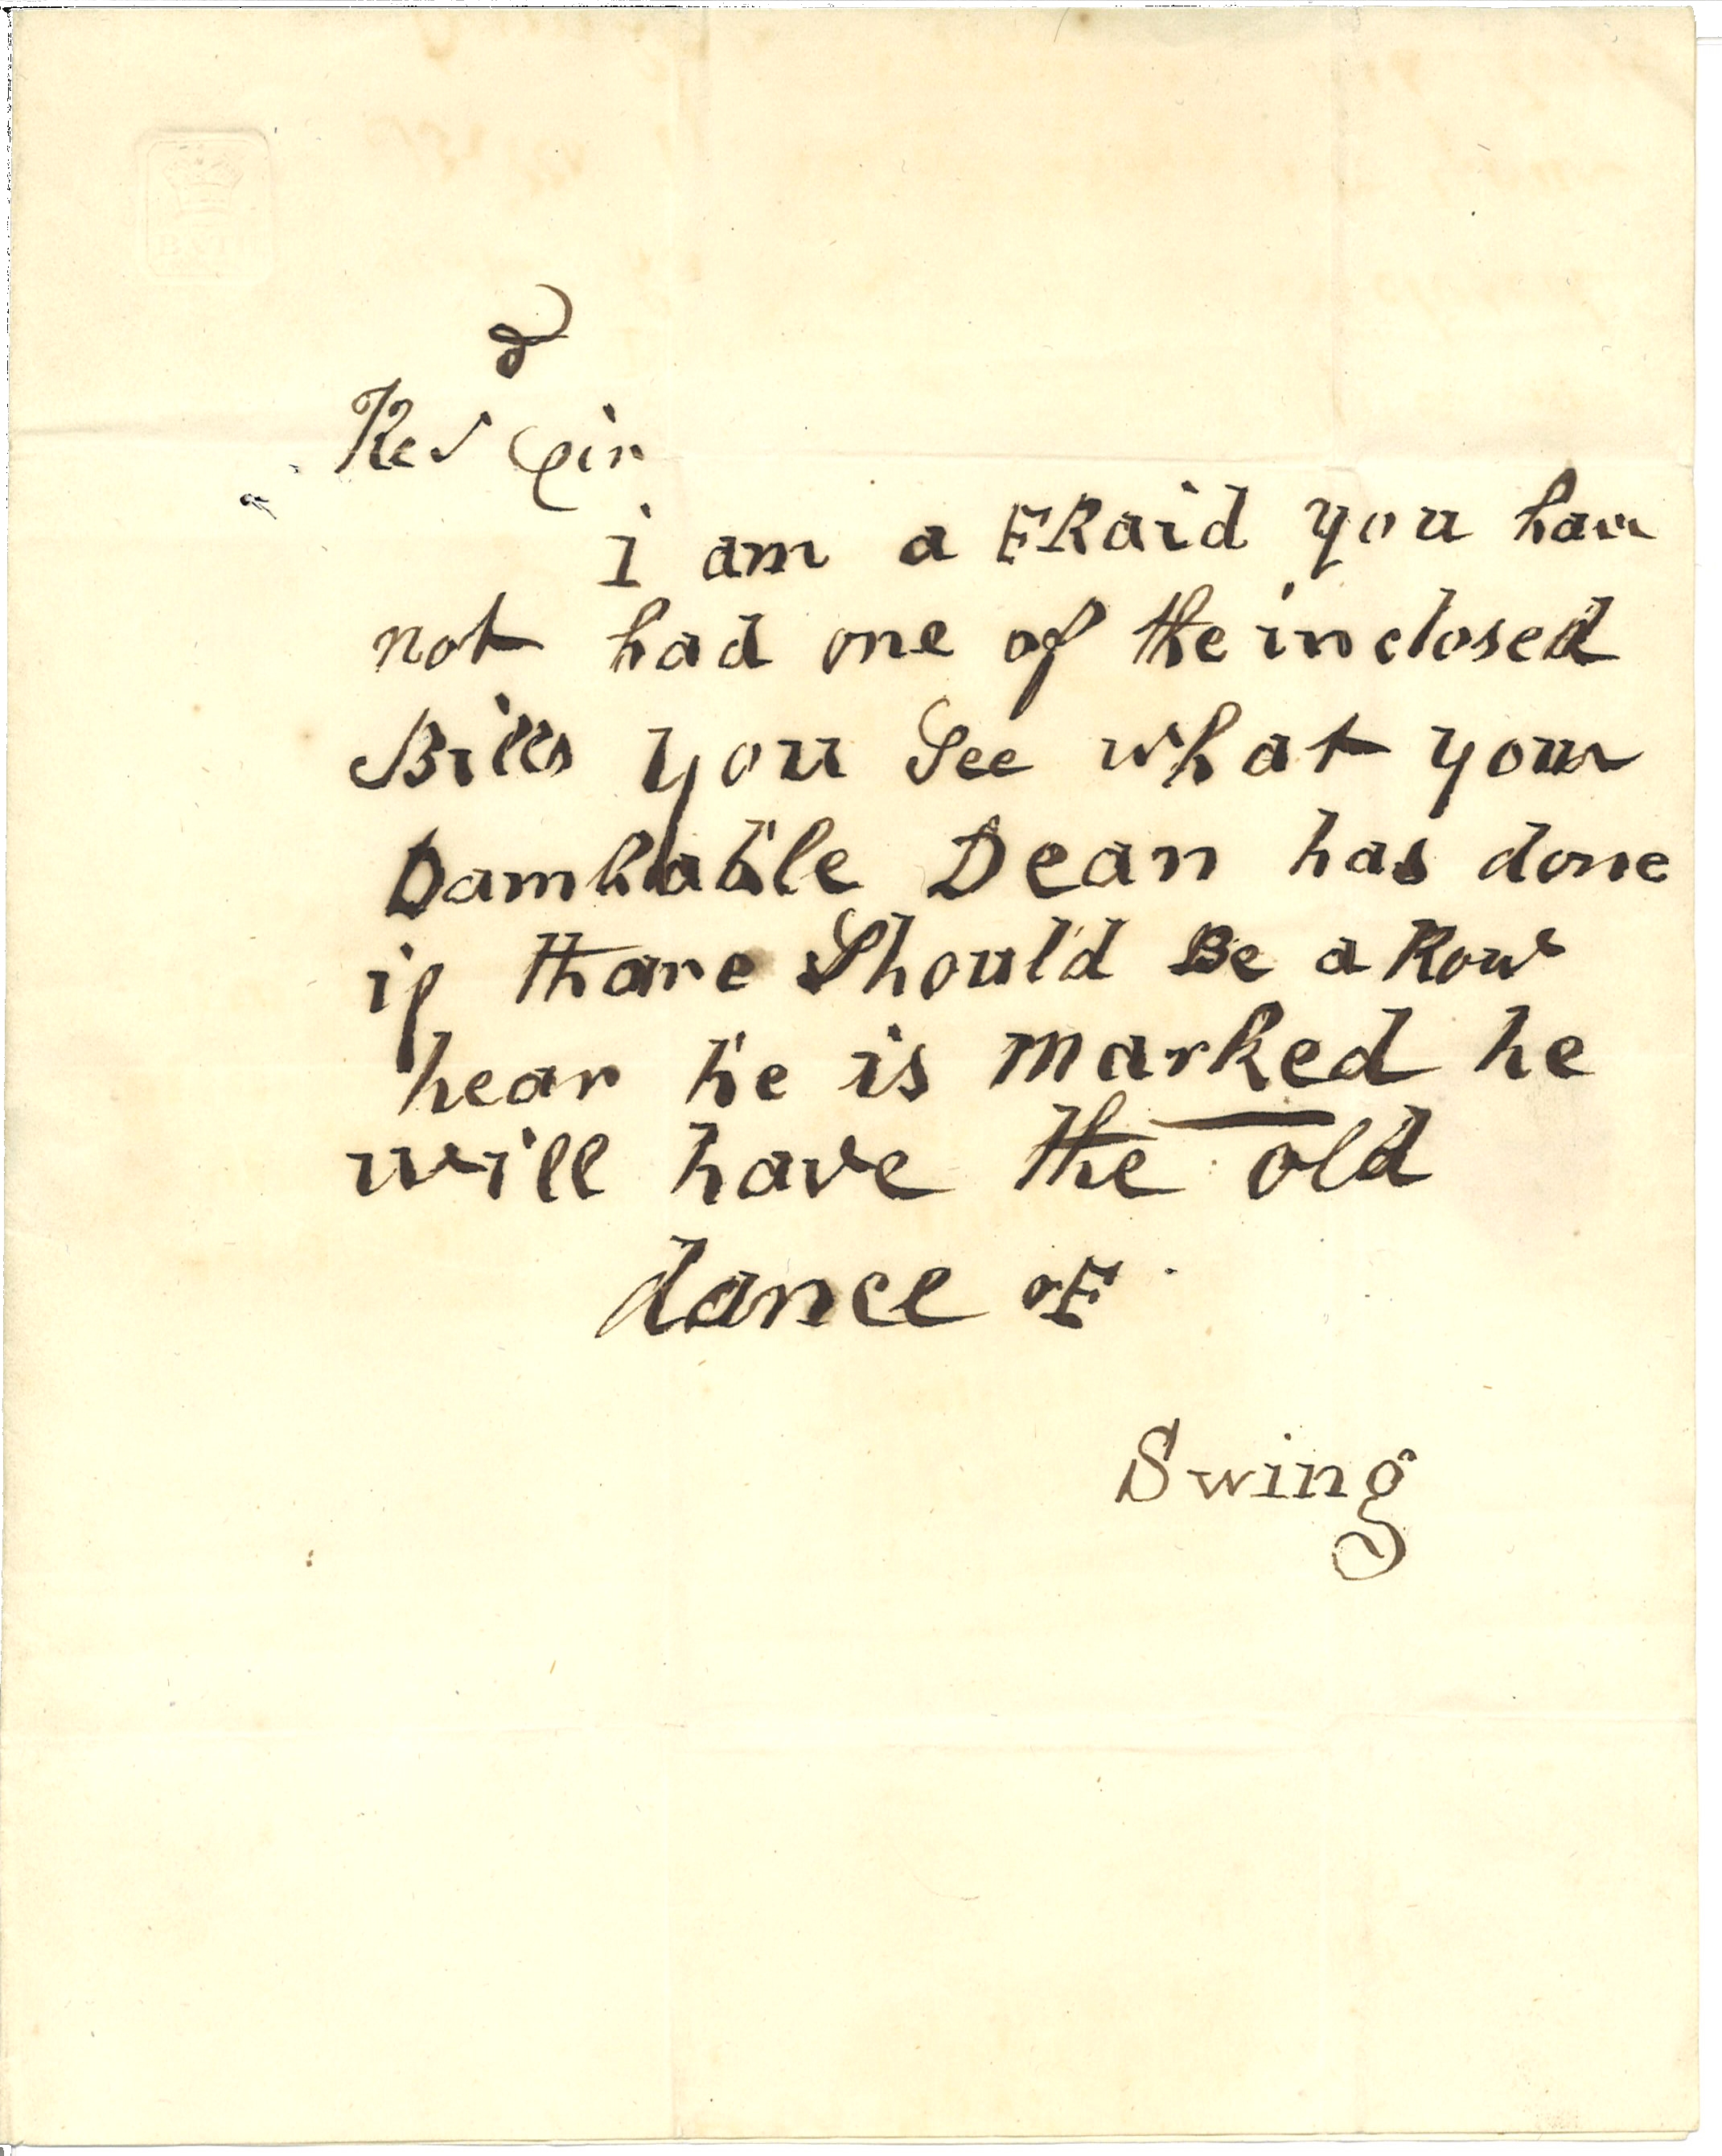 BATH
Revd Sir
i am a FRaid you have
not had one of the inclosed
Bills you See what your
Damhable Dean has done
if thare Should Be a Row
hear he is marked he
will have the old
dance oF
Swing